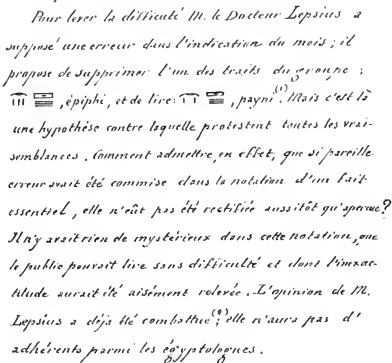 Pour lever la difficulté M. le Docteur Lepsius a
supposé une erreur dans l'indication du mois; il
propose de supprimer l'un des traits du groupe :
, épiphi, et de lire: , payni.(1) Mais c'est là
une hypothèse contre laquelle protestent toutes les vrai-
semblances. Comment admettre, en effet, que si pareille
erreur avait été commise dans la notation d'un fait
essentiel, elle n'eût pas été rectifiée aussitôt qu'aperçue?
Il n'y avait rien de mystérieux dans cette notation, que
le public pouvait lire sans difficulté et dont l'inexac-
titude aurait été aisément relevée. L'opinion de M.
Lepsius a déja été combattue(2); elle n'aura pas d'
adhérents parmi les égyptologues.